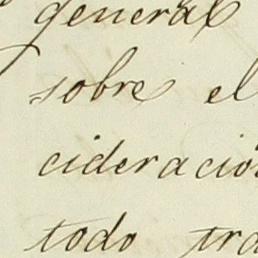 general
sobre el
cideració
todo tra